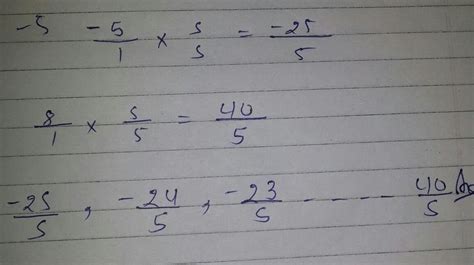 -5 -5/1 × 5/5 = -25/5
8/1 × 5/5 = 40/5
-25/5 , -24/5 , -23/5 ----- 40/5